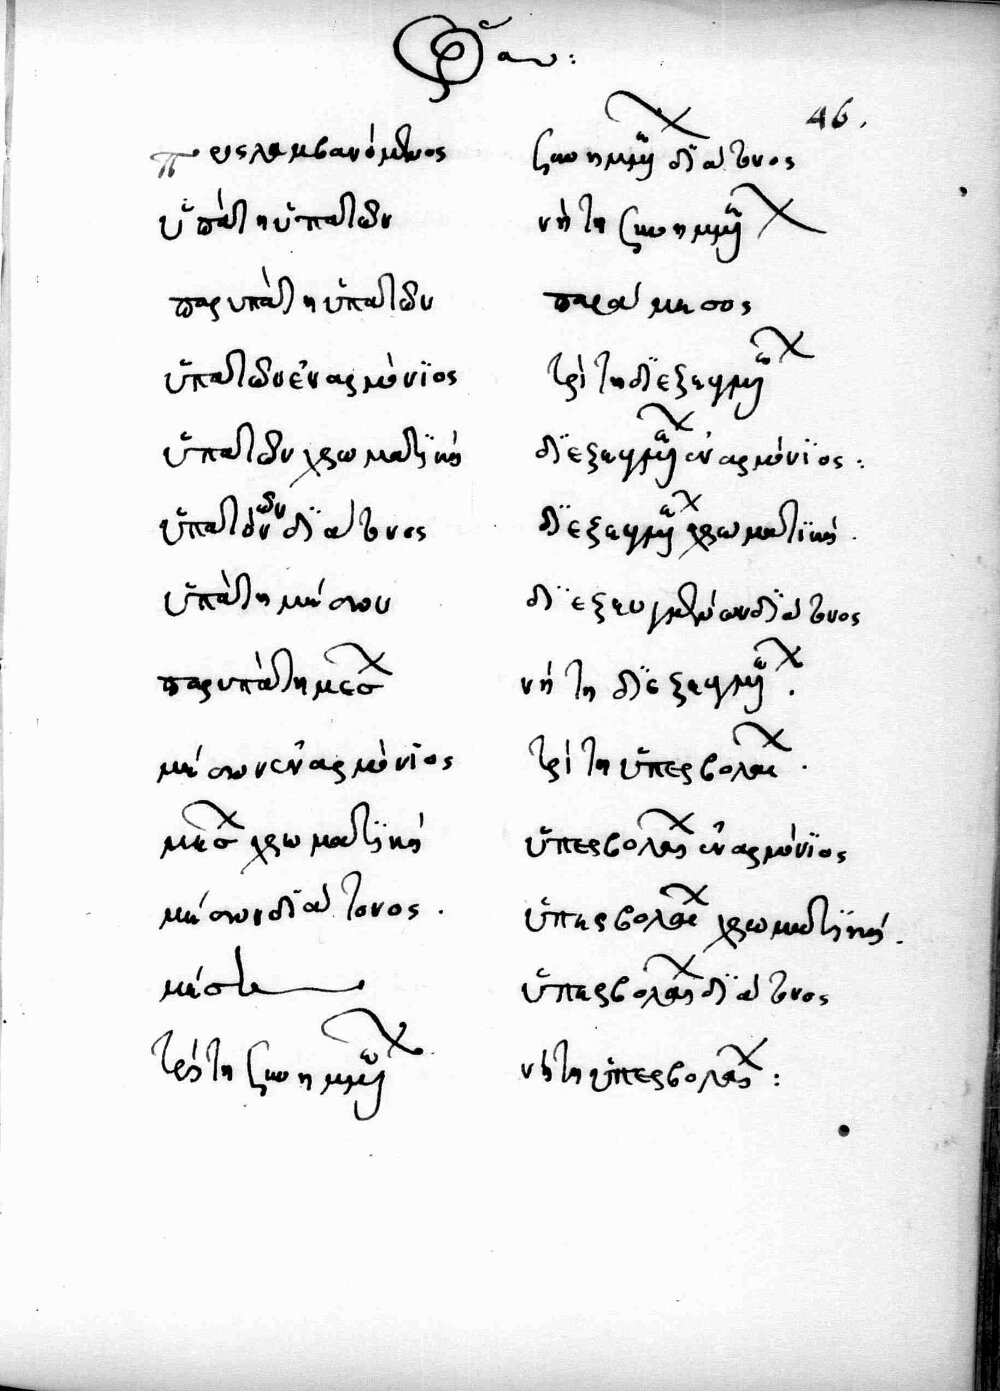 46.
προςλαμβανόμενος
ὑπάτη ὑπατῶν
παρυπάτη ὑπατῶν
ὑπατῶν ἐναρμόνϊος
ὑπατῶν χρωματϊκή
ὑπατῶν δϊάτονος
ὑπάτη μέσων
παρυπάτη μεσ
μέσων ἐναρμόνϊος
μεσ χρωματϊκή
μέσων δϊάτονος.
μέση
τρίτη συνημμ
συνημμ δϊάτονος
νήτη συνημμ
παράμεσος
τρίτη δϊεζευγμ
δϊεζευγμ ἐναρμόνϊος:
δϊεζευγμ χρωματϊκή.
δϊεζευγμένων δϊάτονος
νήτη δϊεζευγμ.
τρίτη ὑπερβολαι.
ὑπερβολαι ἐναρμόνϊος
ὑπερβολαι χρωματϊκή.
ὑπερβολαι δϊάτονος
νήτη ὑπερβολαι: